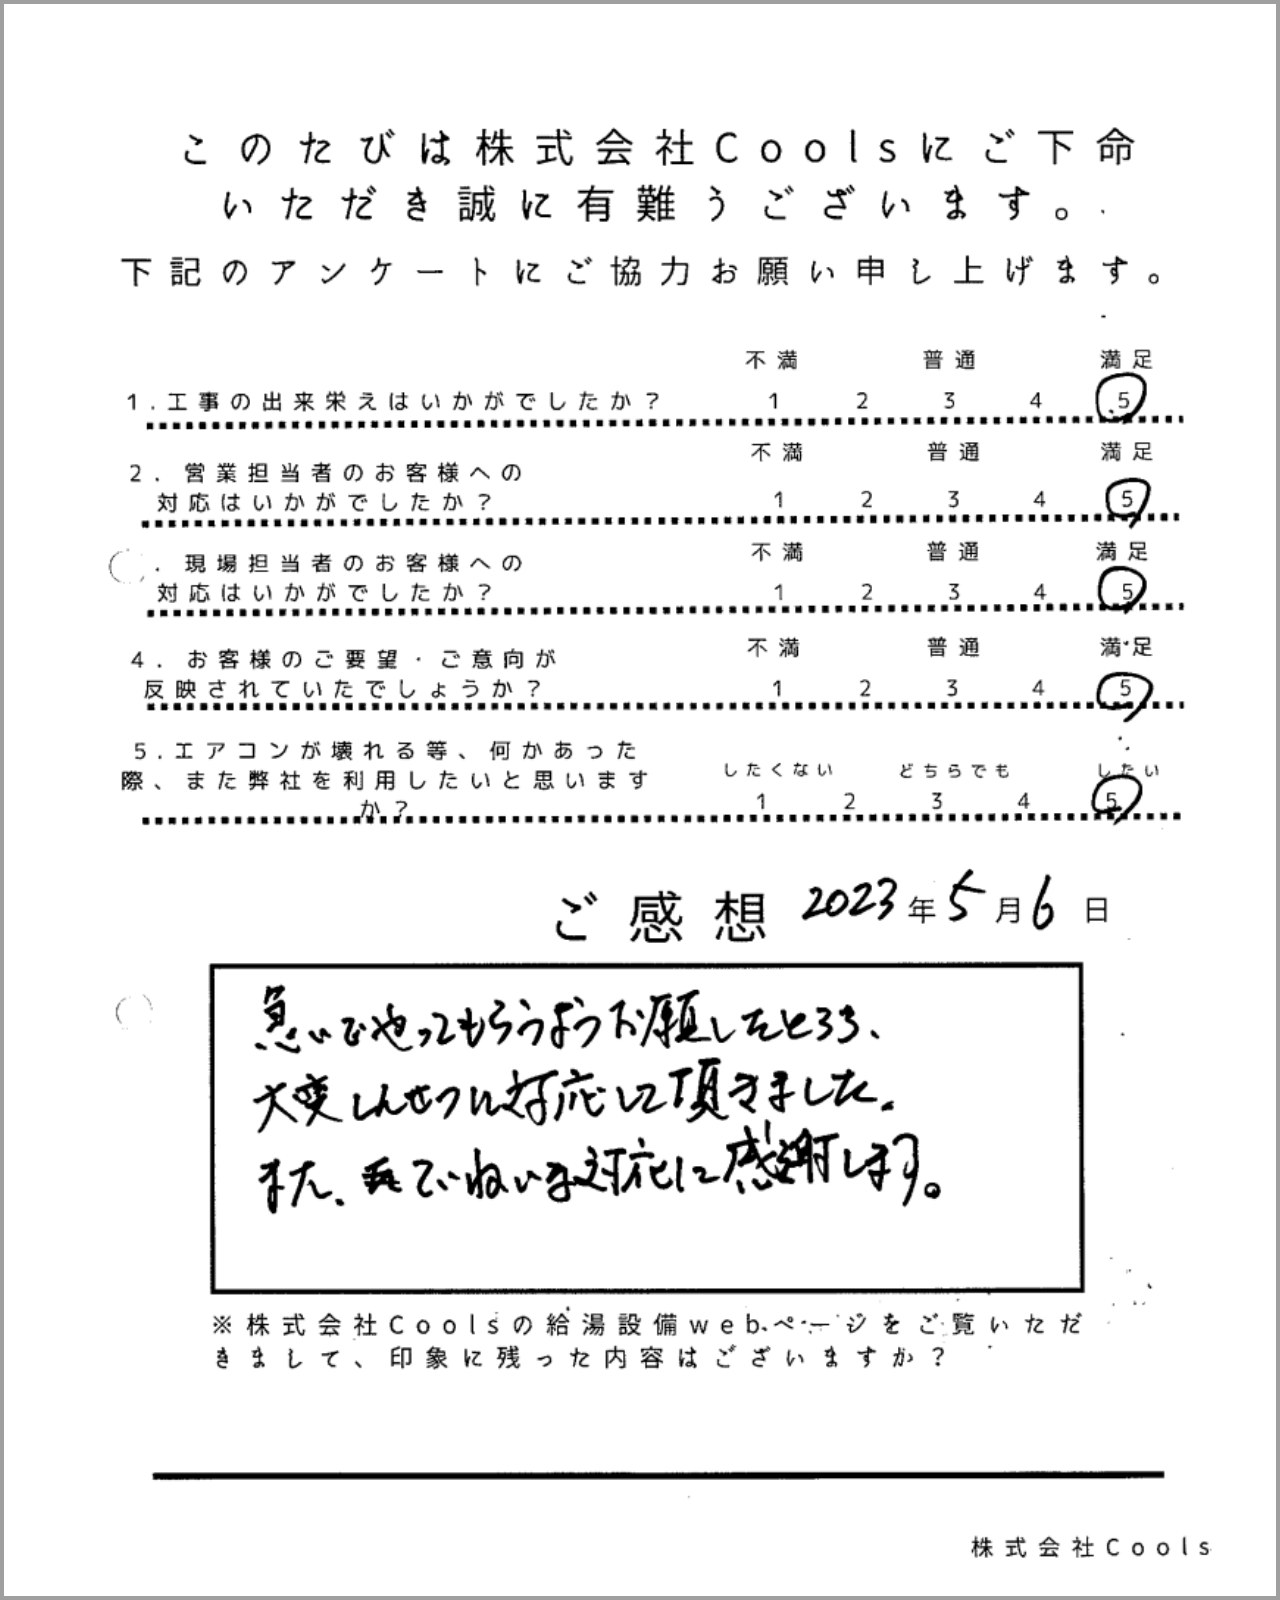 このたびは株式会社Coolsにご下命
いただき誠に有難うございます。
下記のアンケートにご協力お願い申し上げます。
不満 普通 満足
1.工事の出来栄えはいかがでしたか? 1 2 3 4 5
不満 普通 満足
2. 営業担当者のお客様への
対応はいかがでしたか? 1 2 3 4 5
不満 普通 満足
. 現場担当者のお客様への
対応はいかがでしたか? 1 2 3 4 5
不満 普通 満足
4. お客様のご要望・ご意向が
反映されていたでしょうか? 1 2 3 4 5
5.エアコンが壊れる等、何かあった
際、また弊社を利用したいと思います
か?
したくない どちらでも したい
1 2 3 4 5
ご感想 2023年5月6日
急いでやってもらうようお願いしたところ、
大変しんせつに対応して頂きました。
また、ていねいな対応に感謝します。
※株式会社Coolsの給湯設備webページをご覧いただ
きまして、印象に残った内容はございますか?
株式会社Cools